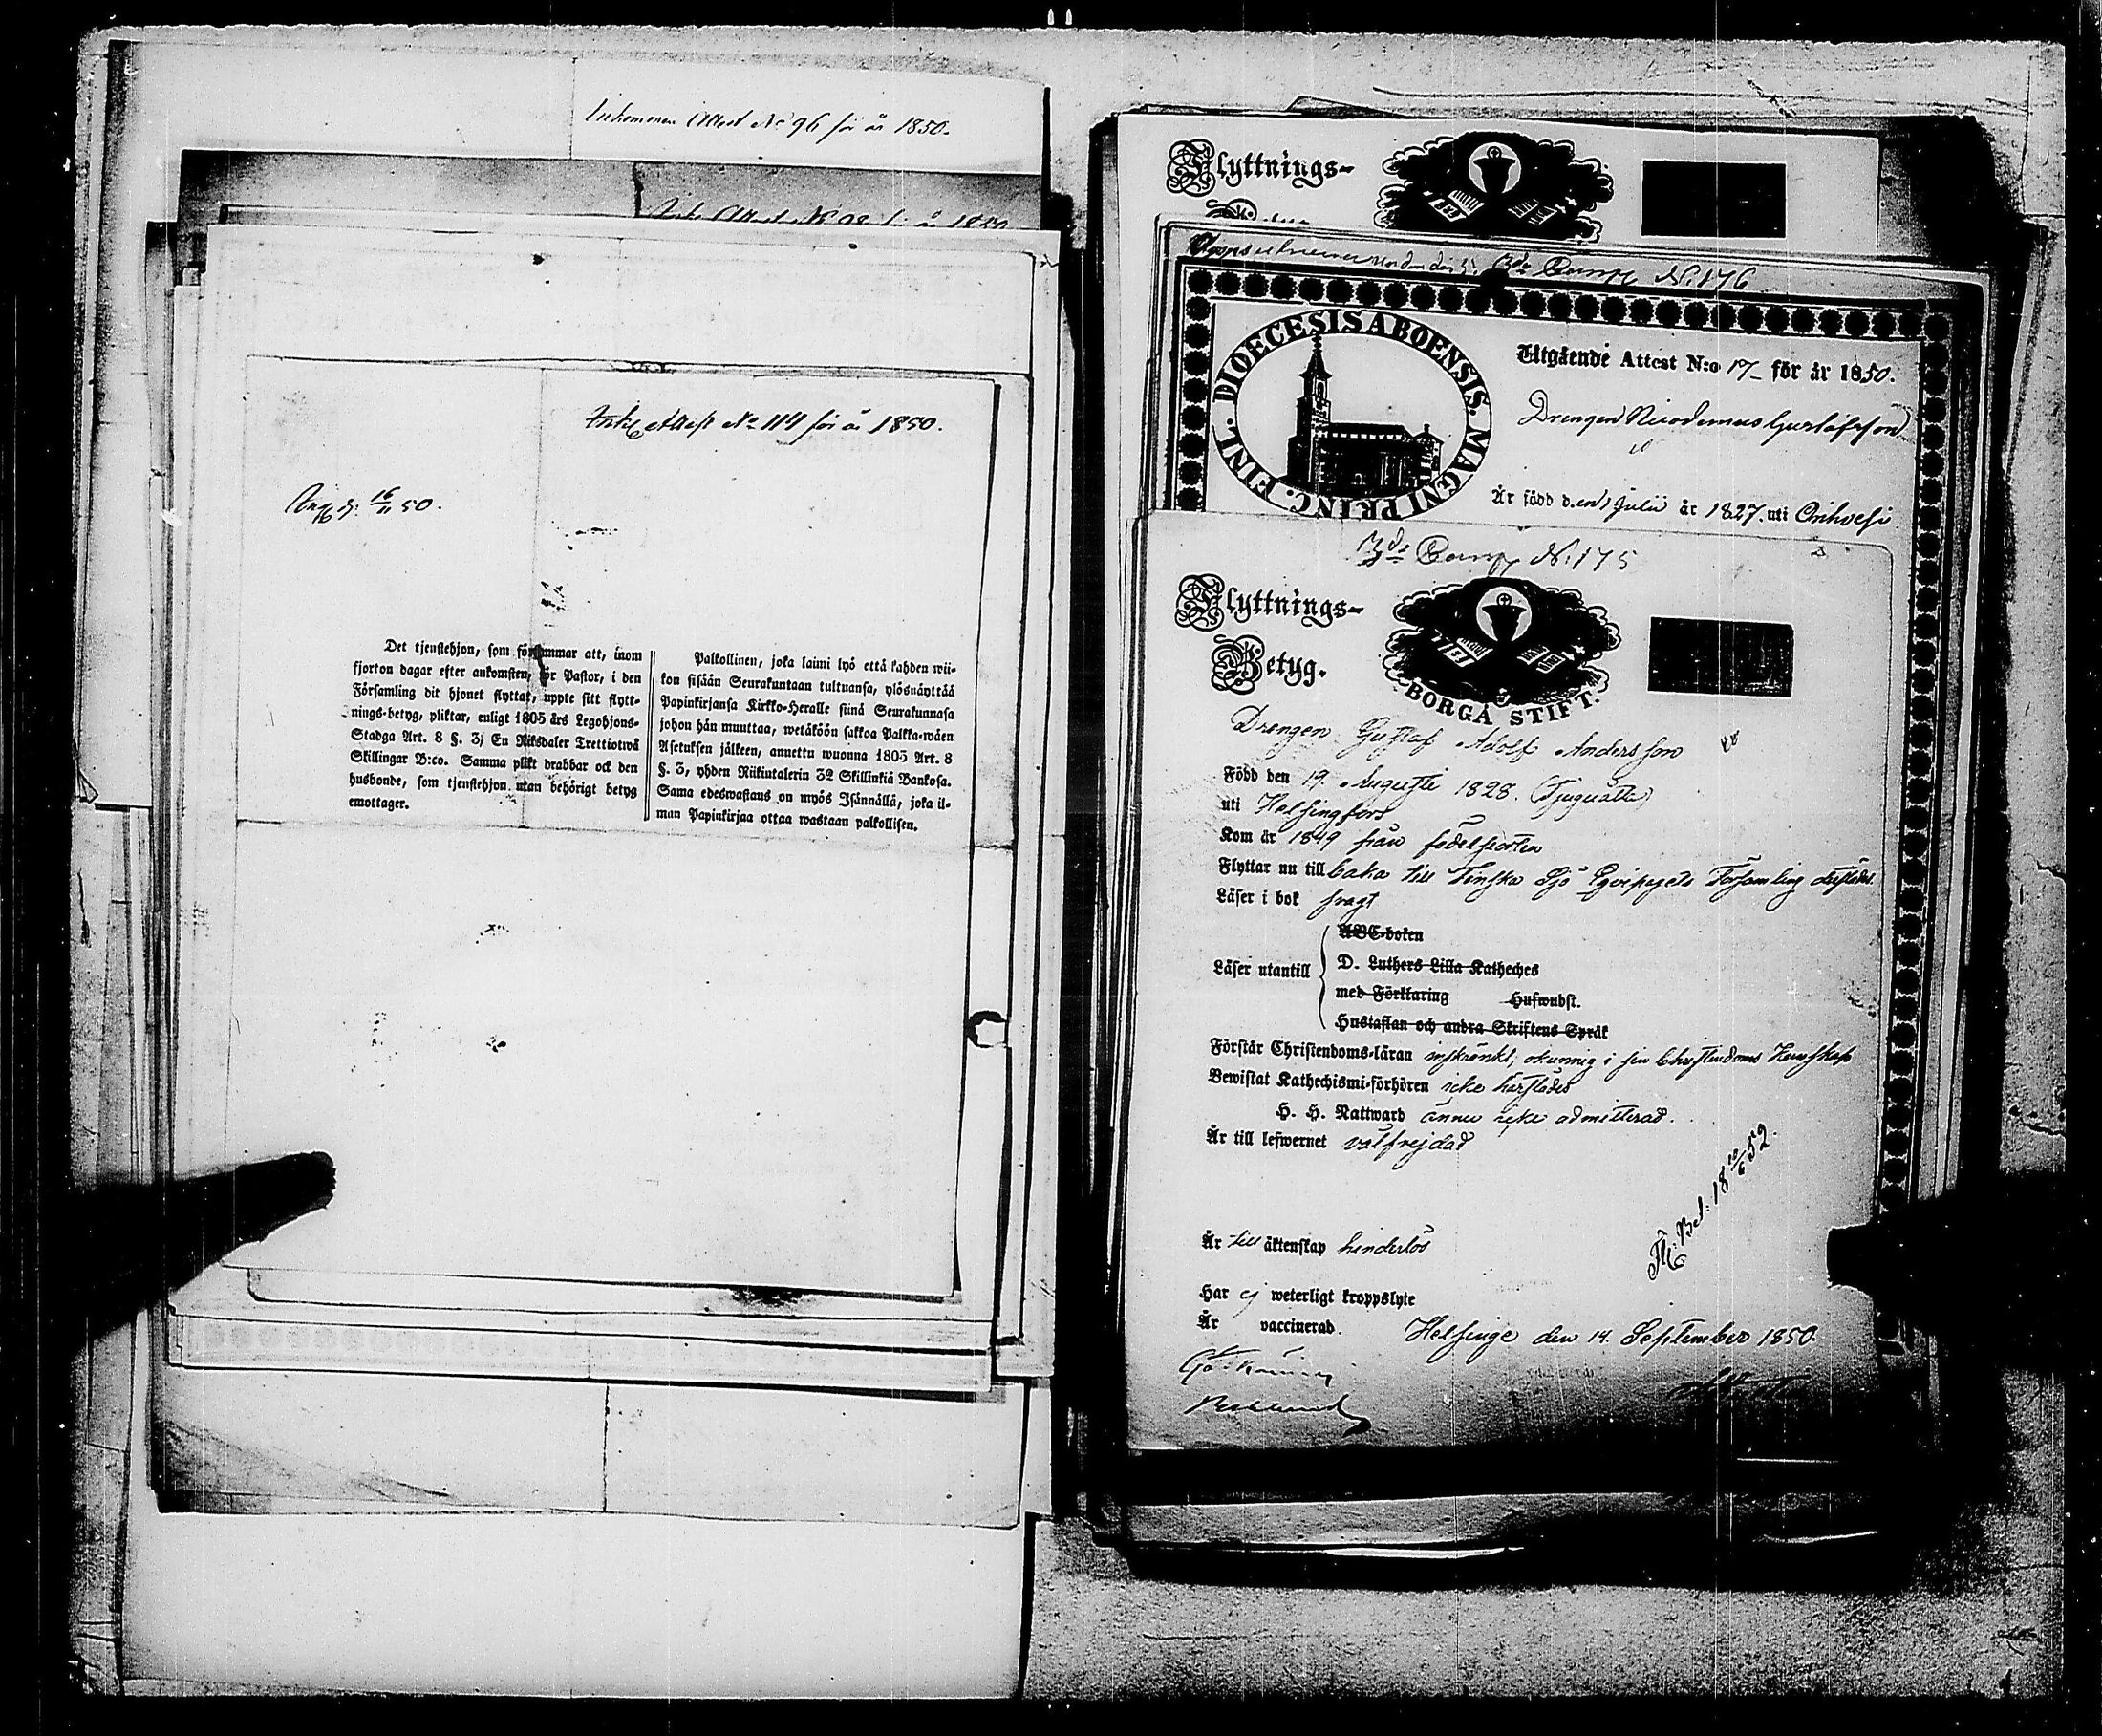 Inkommen Attest No 96 för år 1850.
Ink. Attest No 98 för år 1850
Ink. Attest No 114 för år 1850.
16/11 50.
Det tjenstehjon, som försummar att, inom
fjorton dagar efter ankomsten, för Pastor, i den
Församling dit hjonet flyttat, uppte sitt flytt-
nings-betyg, pliktar, enligt 1805 års Legohjons-
Stadga Art. 8 §. 3; En Riksdaler Trettiotwå
Skillingar B:co. Samma plikt drabbar ock den
husbonde, som tjenstehjon utan behörigt betyg
emottager.
Palkollinen, joka laimi lyö että kahden wii-
kon sisään Seurakuntaan tultuansa, ylösnäyttää
Papinkirjansa Kirkko-Heralle siinä Seurakunnasa
johon hän muuttaa, wetäköön sakkoa Palkka-wäen
Asetuksen jälkeen, annettu wuonna 1805 Art. 8
§. 3, yhden Riikintalerin 32 Skillinkiä Bankosa.
Sama edeswastaus on myös Isännällä, joka il-
man Papinkirjaa ottaa wastaan palkollisen.
Flyttnings-
3de Comp N. 176
DIOECESIS ABOENSIS. MAGNI PRINC. FINL.
Utgående Attest N:o 17 för år 1850.
Drengen Nicodemus Gustafsson
Är född d.en 1 Julii år 1827. uti Orihvesi
3de Comp N. 175
Flyttnings-
Betyg.
BORGÅ STIFT.
Drengen Gustaf Adolf Andersson
Född den 19. Augusti 1828. (Tjuguåtta)
uti Helsingfors
Kom år 1849 från födelseorten
Flyttar nu till baka till Finska Sjö Equipagets Församling derstädes.
Läser i bok svagt
ABC-boken
Läser utantill
D. Luthers Lilla Katheches
med Förklaring Hufwudst.
Hustaflan och andra Skriftens Språk
Förstår Christendoms-läran inskränkt; okunnig i sin Christendoms Kunskap
Bewistat Kathechismi-förhören icke härstädes
H. H. Nattward ännu icke admitterad.
Är till lefwernet välfrejdad
Bet: 18 10/6 52.
Är till äktenskap hinderlös
Har ej weterligt kroppslyte
Är vaccinerad.
Helsinge den 14. September 1850.